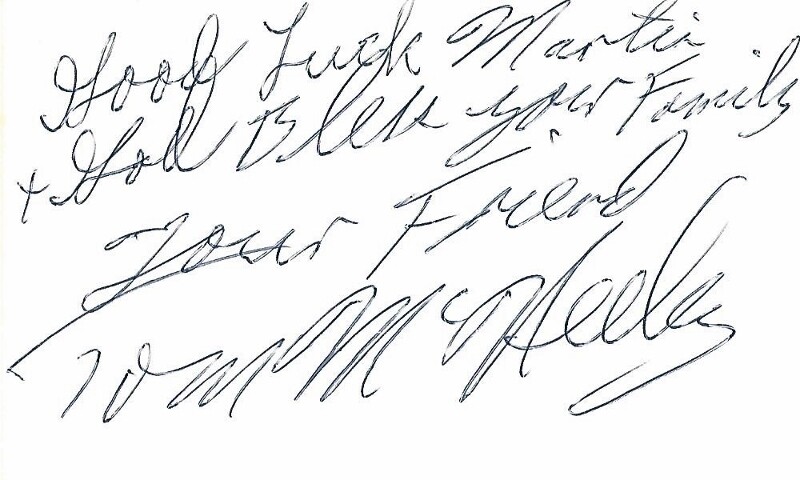 Good Luck Martin
+ God Bless your Family
Your Friend
Tom McNeeley